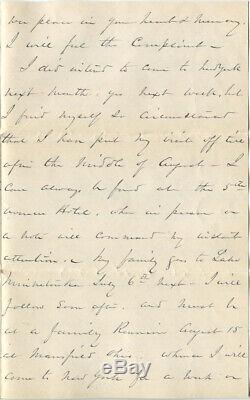 place in your heart & memory
I will feel the Compliment -
I did intend to come to
next month, yes next week, but
I find myself so circumstanced
that I have put my visit off till
after the Middle of August - I
can always be found at the 5th
Avenue Hotel, when in person or
a note will command my instant
attention. - My family goes to Lake
Minnetonka July 6th next - I will
follow soon after, and must be
at a family Reunion August 15
at Mansfield Ohio; whence I will
come to New York for a week or